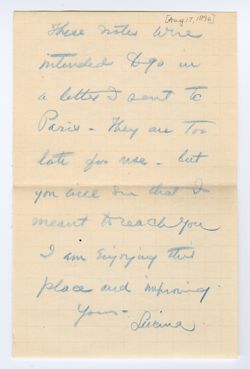 [Aug 17, 1896]
These notes were
intended to go in
a letter I sent to
Paris - They are too
late for use - but
you will see that I
meant to reach you
I am enjoying this
place and improving.
Yours -